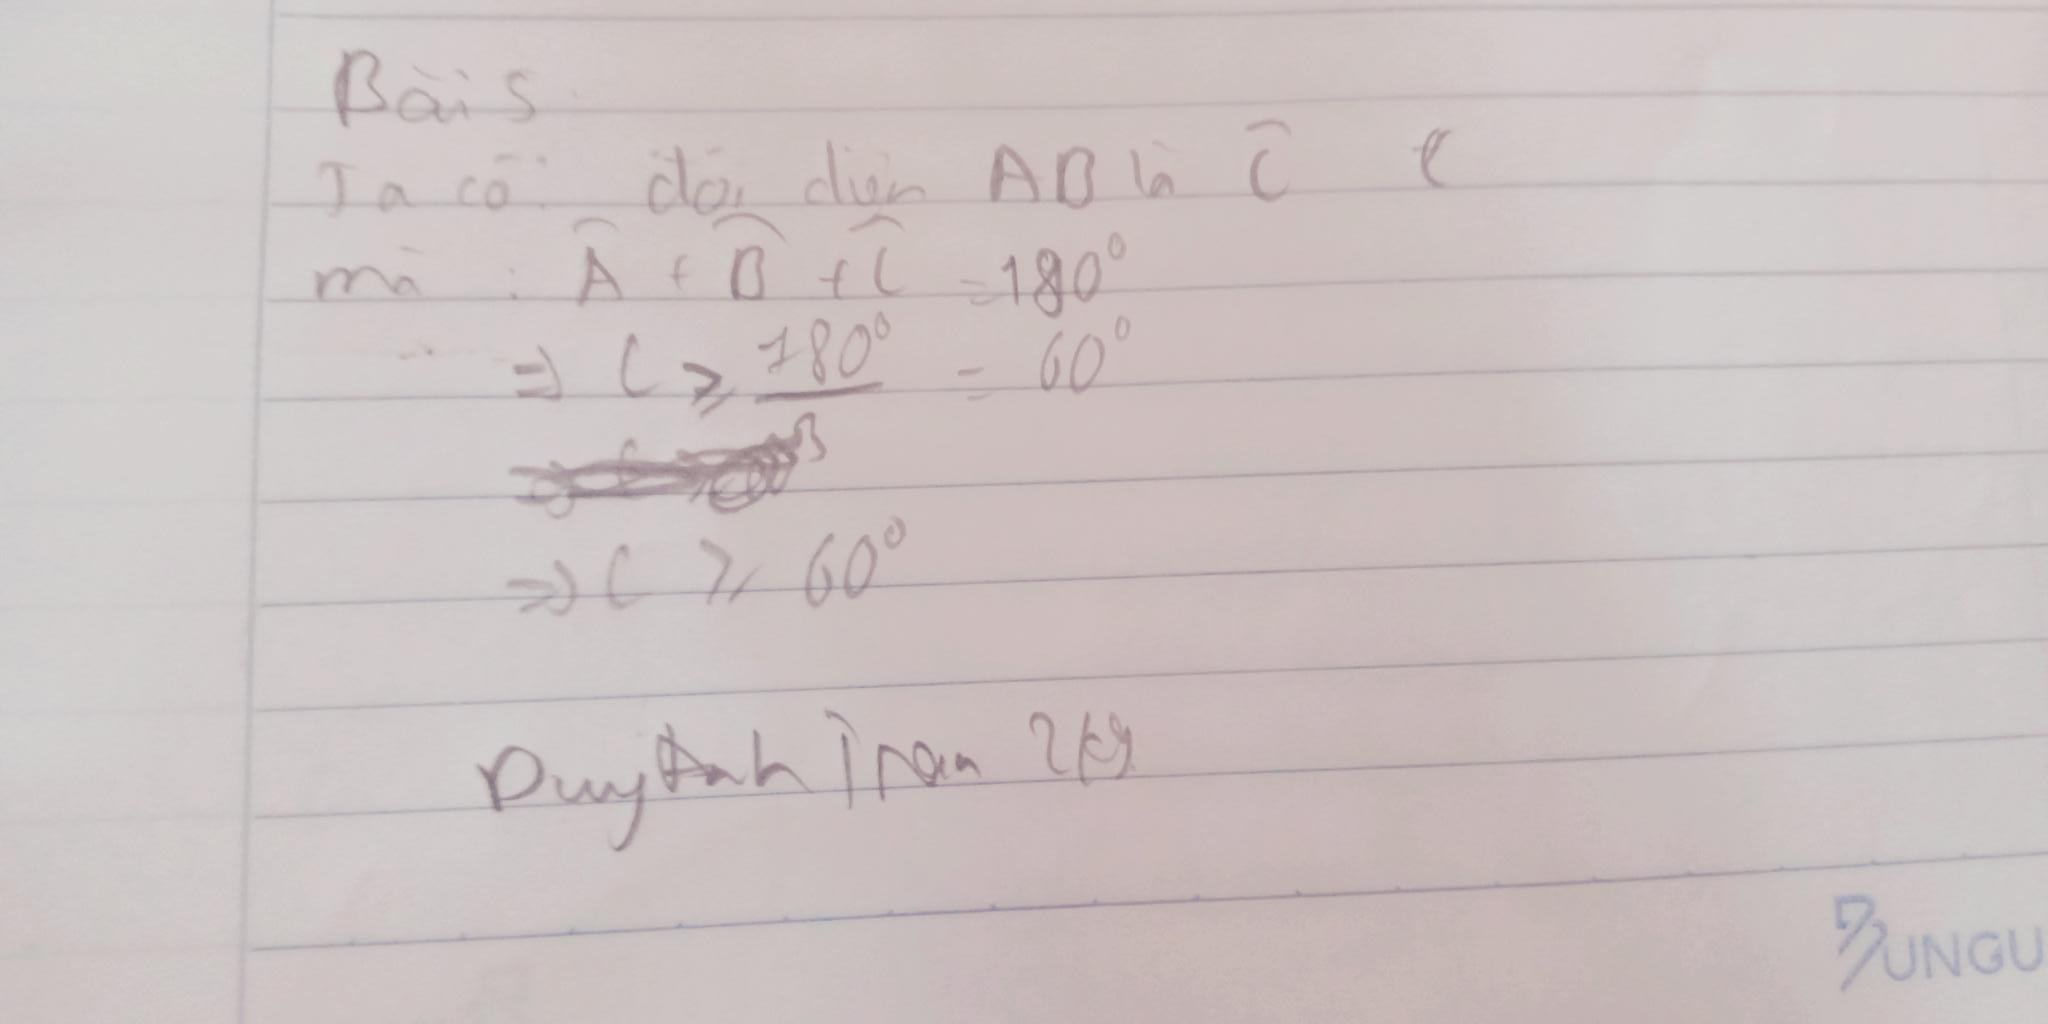 Bài 5
Ta có: đối diện AB là Ĉ
mà : Â + B̂ + Ĉ = 180°
=> C ≥ 180° = 60°
3
=> C ≥ 60°
Duy Anh Tran 2k9
BUNGU